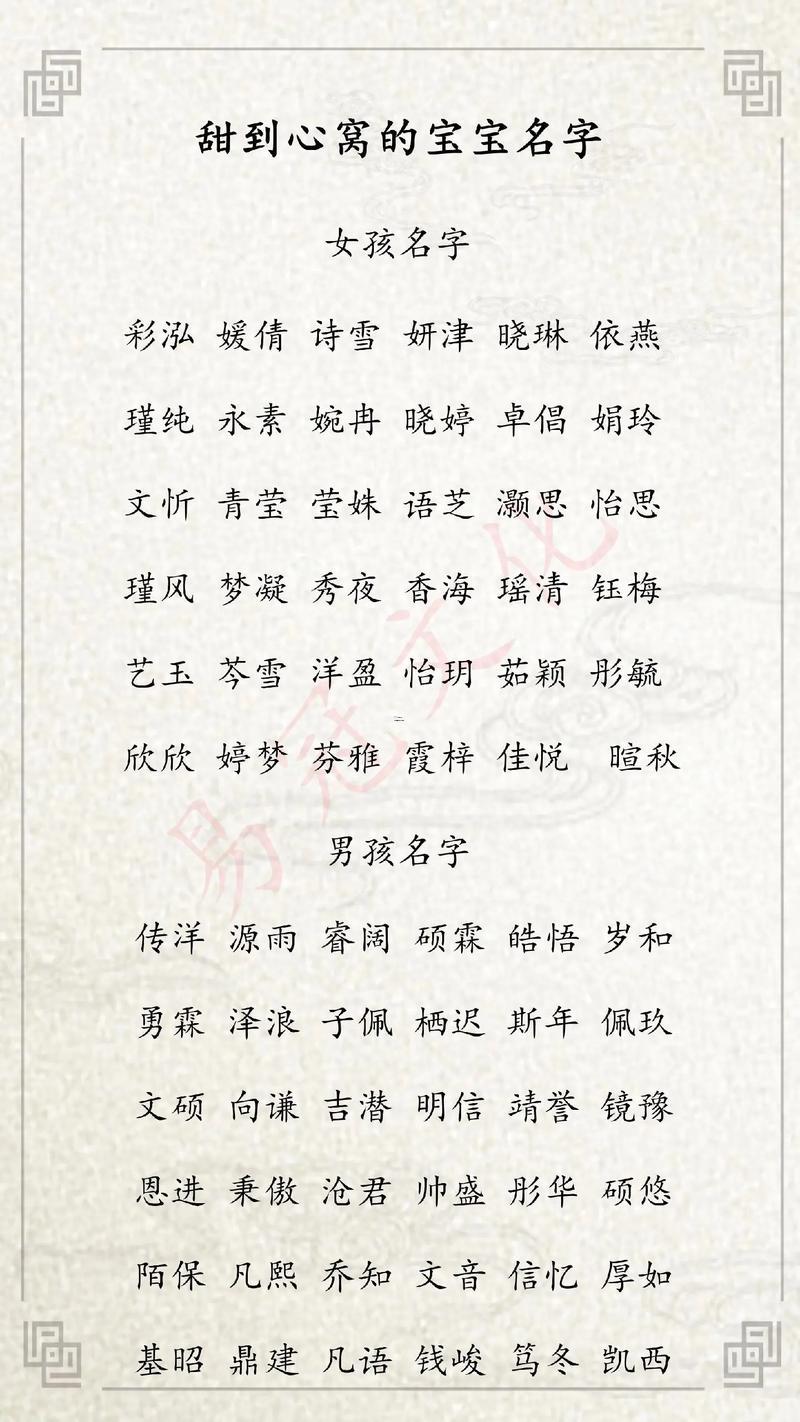 甜到心窝的宝宝名字
女孩名字
彩泓 媛倩 诗雪 妍津 晓琳 依燕
瑾纯 永素 婉冉 晓婷 卓倡 娟玲
文忻 青莹 莹姝 语芝 灏思 怡思
瑾风 梦凝 秀夜 香海 瑶清 钰梅
艺玉 芩雪 洋盈 怡玥 茹颖 彤毓
欣欣 婷梦 芬雅 霞梓 佳悦 暄秋
易冠文化
男孩名字
传洋 源雨 睿阔 硕霖 皓悟 岁和
勇霖 泽浪 子佩 栖迟 斯年 佩玖
文硕 向谦 吉潜 明信 靖誉 镜豫
恩进 秉傲 沧君 帅盛 彤华 硕悠
陌保 凡熙 乔知 文音 信忆 厚如
基昭 鼎建 凡语 钱峻 笃冬 凯西